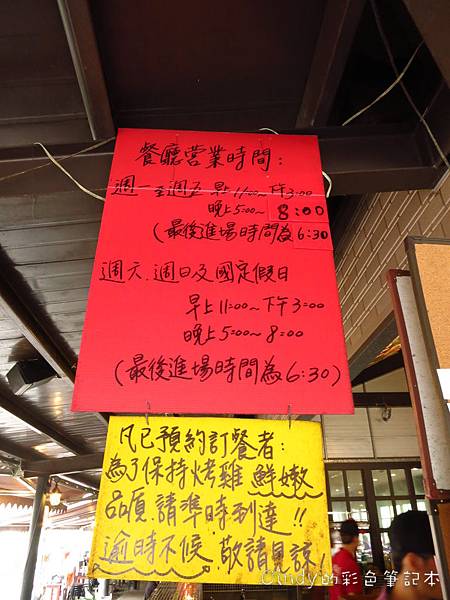 餐廳營業時間:
週一至週五 早上11:00~下午3:00
晚上5:00~8:00
(最後進場時間為6:30)
週六.週日及國定假日
早上11:00~下午3:00
晚上5:00~8:00
(最後進場時間為6:30)
凡已預約訂餐者:
為了保持烤雞鮮嫩
品質.請準時到達!!
逾時不候.敬請見諒!
Cindy的彩色筆記本